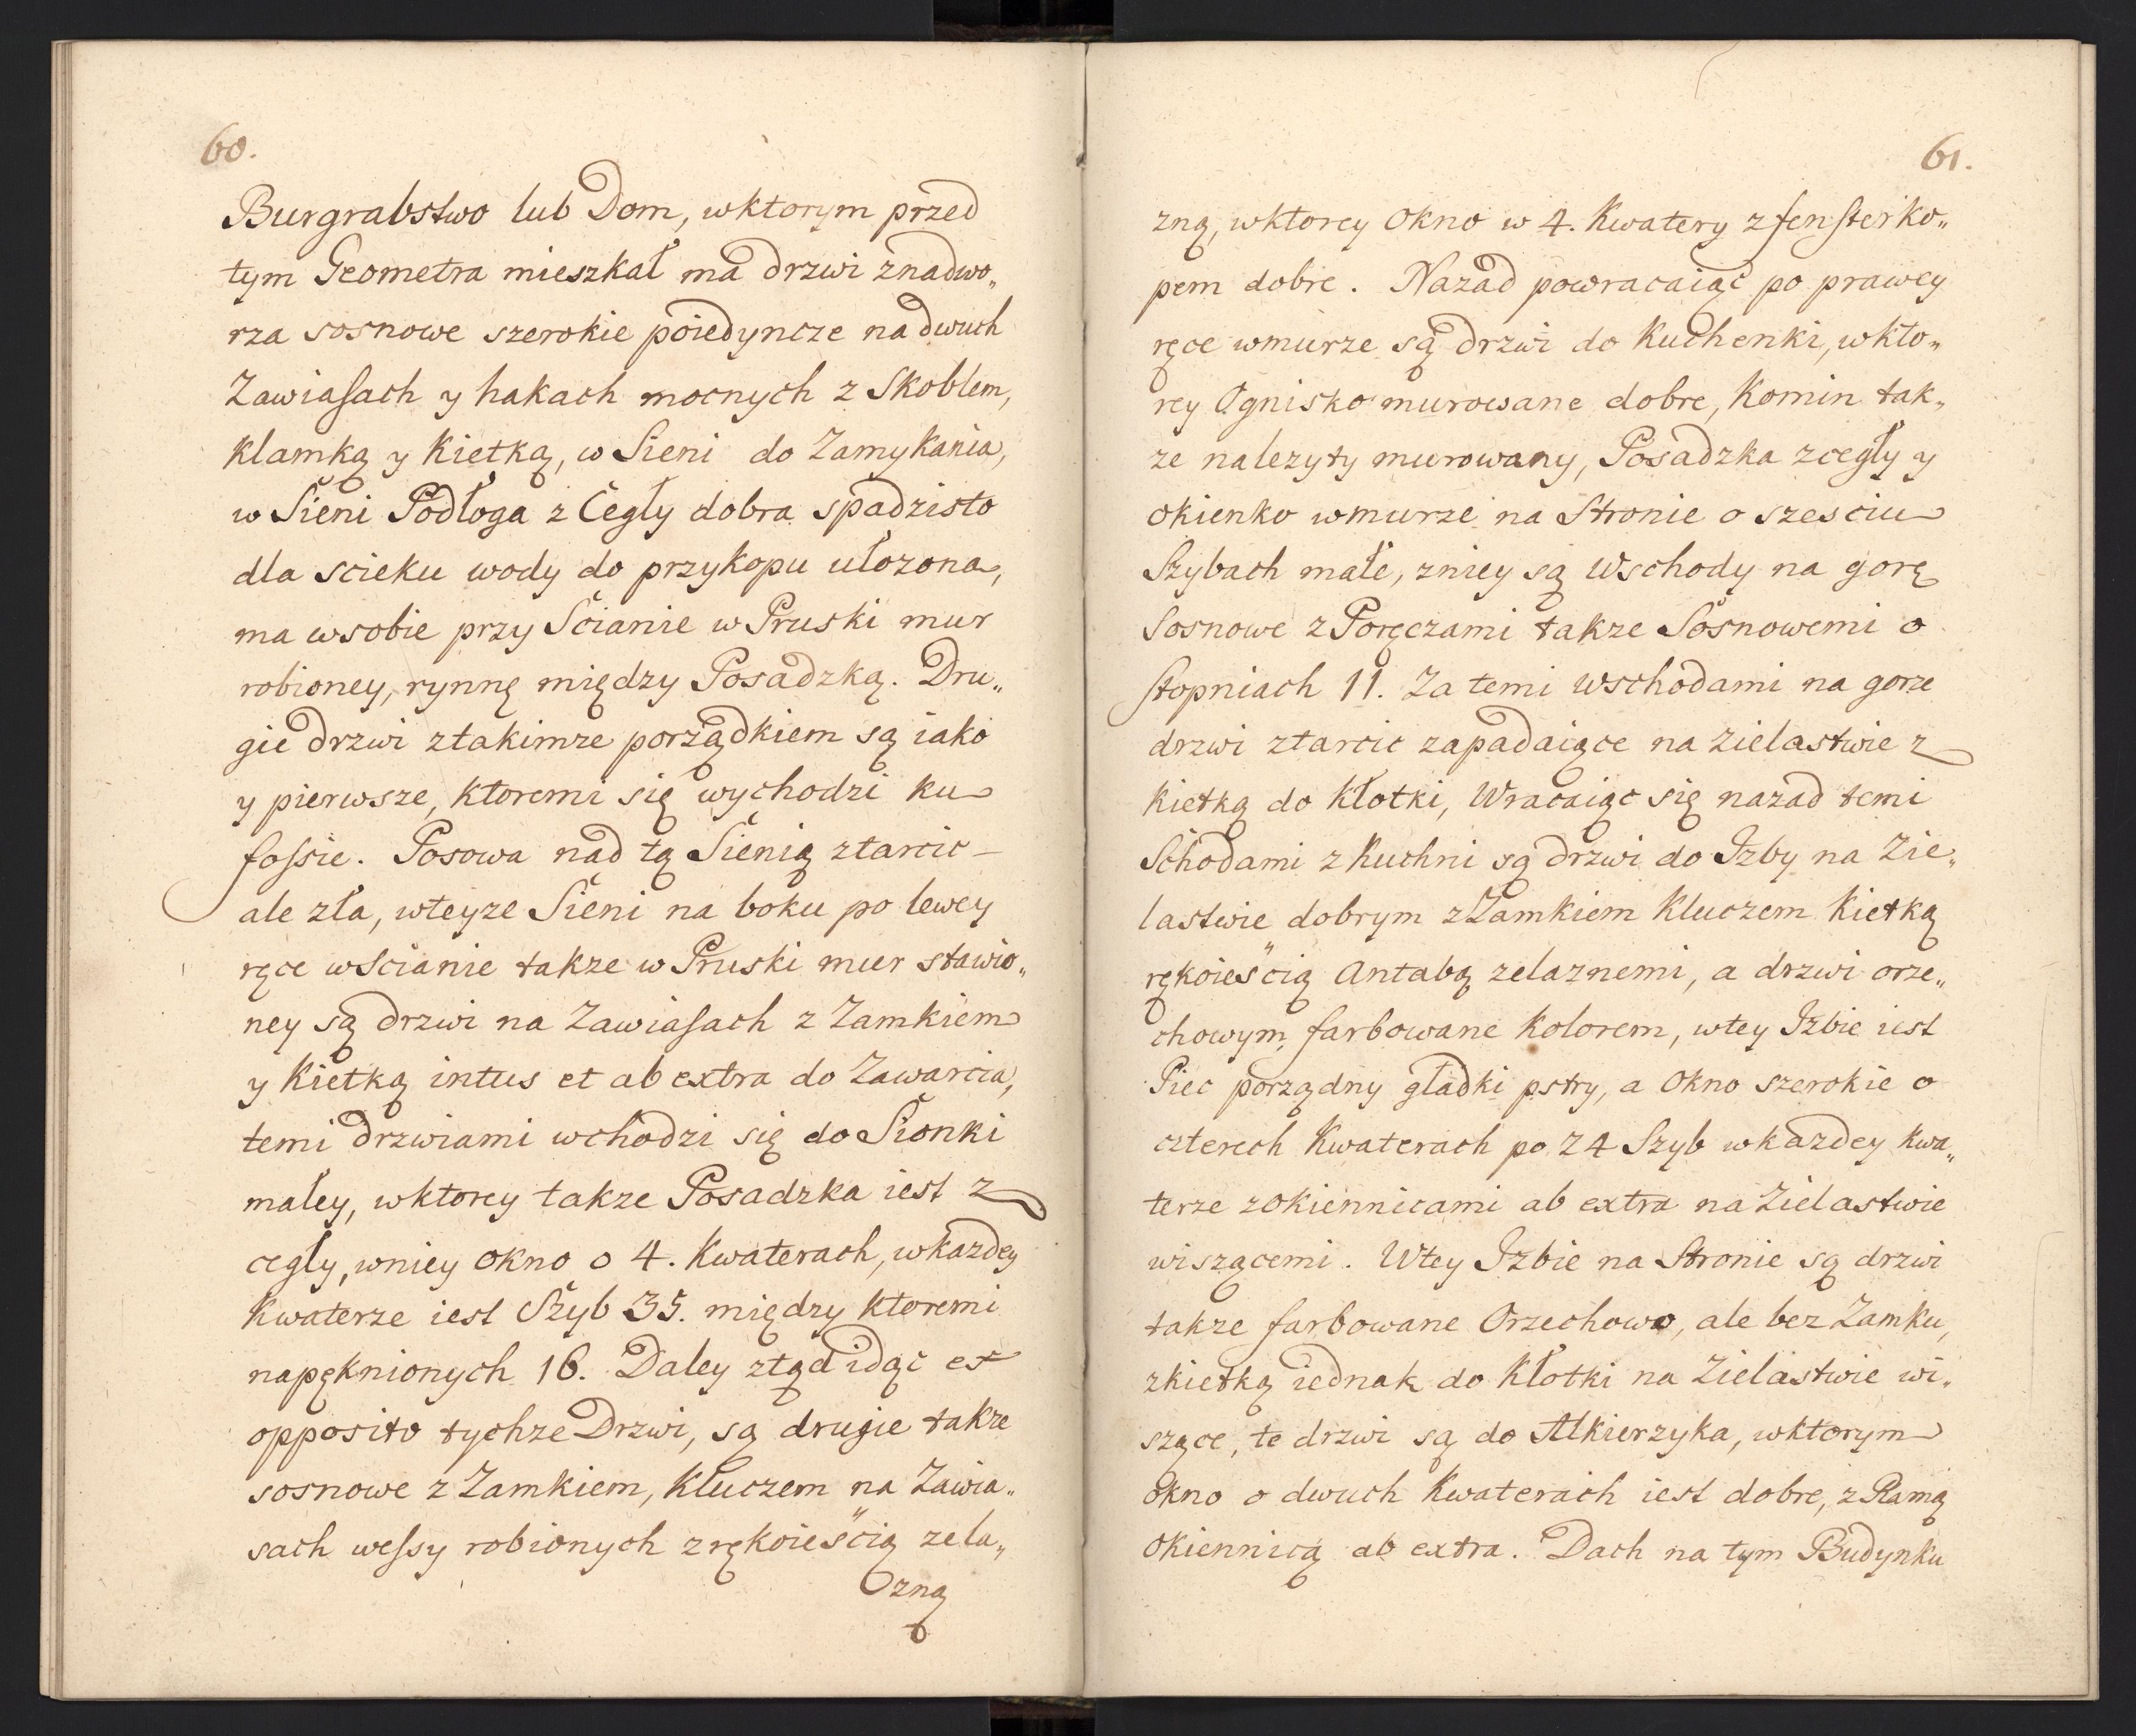 60.
Burgrabstwo lub Dom, wktorym przed
tym Geometra mieszkał ma drzwi znadwo„
rza sosnowe szerokie poiedyncze na dwuch
Zawiasach y hakach mocnych z Skoblem,
klamką y Kietką, w Sieni do Zamykania,
w Sieni Podłoga z Cegły dobra spadzisto
dla scieku wody do przykopu ułozona,
ma wsobie przy Scianie w Pruski mur
robioney, rynnę między Posadzką. Dru„
gie drzwi ztakimze porządkiem są iako
y pierwsze, ktoremi się wychodzi ku
fossie. Posowa nad tą Sienią ztarcic
ale zła, wteyze Sieni na boku po lewey
ręce wScianie takze w Pruski mur stawio„
ney są drzwi na Zawiasach z Zamkiem
y Kietką intus et ab extra do Zawarcia,
temi drzwiami wchodzi się do Sionki
małey, wktorey takze Posadzka iest z
cegły, wniey okno o 4. Kwaterach, wkazdey
Kwaterze iest Szyb 35. między ktoremi
napęknionych 16. Daley ztąd idąc ex
opposito tychze Drzwi, są drugie takze
sosnowe z Zamkiem, Kluczem na Zawia„
sach wessy robionych z rękoieścią zela„
zną
61.
zną, wktorey Okno w 4. Kwatery z fensterko„
pem dobre. Nazad powracaiąc po prawey
ręce wmurze są drzwi do Kuchenki, wkto„
rey Ognisko murowane dobre, Komin tak„
ze nalezyty murowany, Posadzka zcegły y
okienko wmurze na Stronie o szesciu
Szybach małe, zniey są Wschody na gorę
Sosnowe z Poręczami takze Sosnowemi o
stopniach 11. Za temi wschodami na gorze
drzwi ztarcic zapadaiące na zielastwie z
Kietką do Kłotki, Wracaiąc się nazad temi
Schodami z Kuchni są drzwi do Izby na Zie„
lastwie dobrym z Zamkiem Kluczem Kietką
rękoieścią Antabą zelaznemi, a drzwi orze„
chowym farbowane Kolorem, wtey Izbie iest
Piec porządny gładki pstry, a Okno szerokie o
czterech Kwaterach po 24 Szyb wkazdey Kwa„
terze zokiennicami ab extra na Zielastwie
wiszącemi. Wtey Izbie na Stronie są drzwi
takze farbowane Orzechowo, ale bez Zamku,
zkietką iednak do Kłotki na Zielastwie wi„
szące, te drzwi są do Alkierzyka, wktorym
okno o dwuch Kwaterach iest dobre, z Ramą
Okiennicą ab extra. Dach na tym Budynku